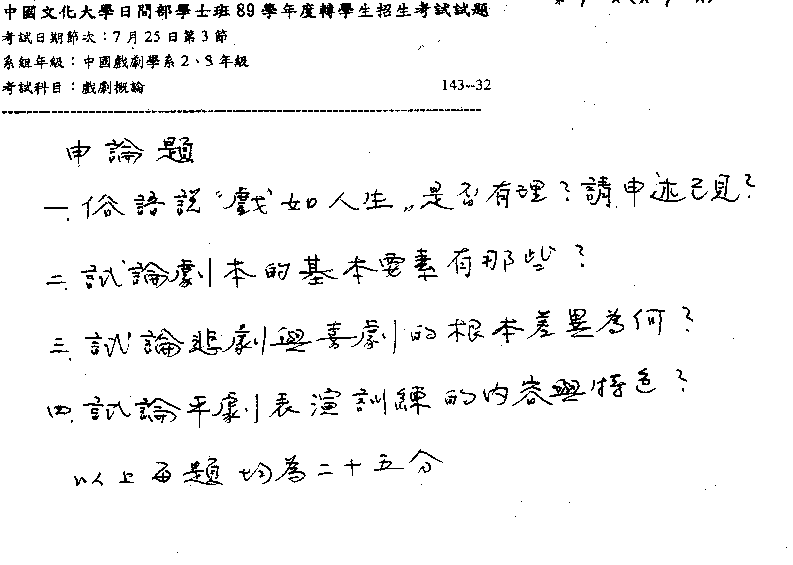 中國文化大學日間部學士班89學年度轉學生招生考試試題
考試日期節次：7月25日第3節
系組年級：中國戲劇學系2、3年級
考試科目：戲劇概論 143--32
申論題
一. 俗語說"戲如人生"是否有理？請申述己見？
二. 試論劇本的基本要素有那些？
三. 試論悲劇與喜劇的根本差異為何？
四. 試論平劇表演訓練的內容與特色？
以上每題均為二十五分